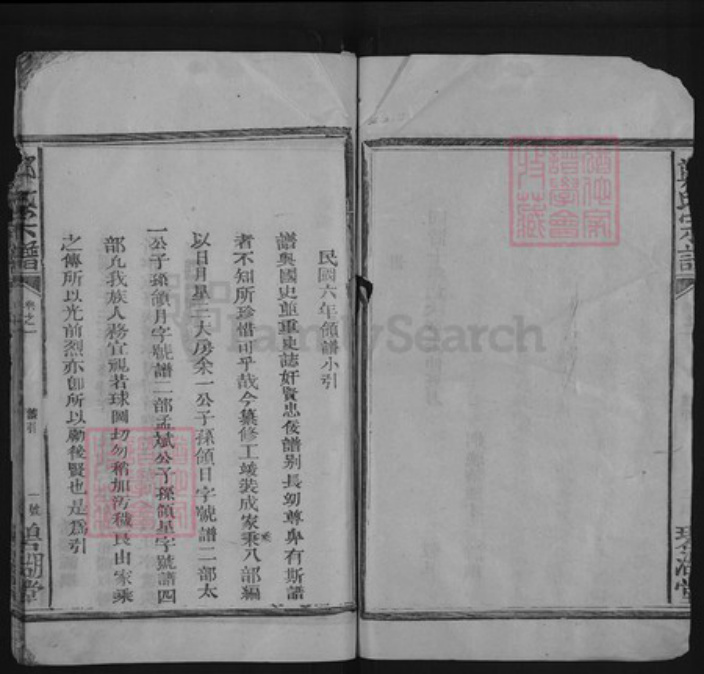 民國六年領譜小引
譜與國史並重史誌奸賢忠佞譜别長幼尊卑有斯譜
者不知所珍惜可乎哉今纂修工竣裝成家乘八部編
以日月星三大房余一公子孫領日字號譜二部太
一公子孫領月字號譜二部孟斌公子孫領星字號譜四
部凡我族人務宜視若球圖切勿稍加污穢良由家乘
之傳所以光前烈亦卽所以勵後賢也是爲引
宗譜
卷之一
譜引
一號
碧湖堂
鄭氏宗譜
碧湖堂
FamilySearch